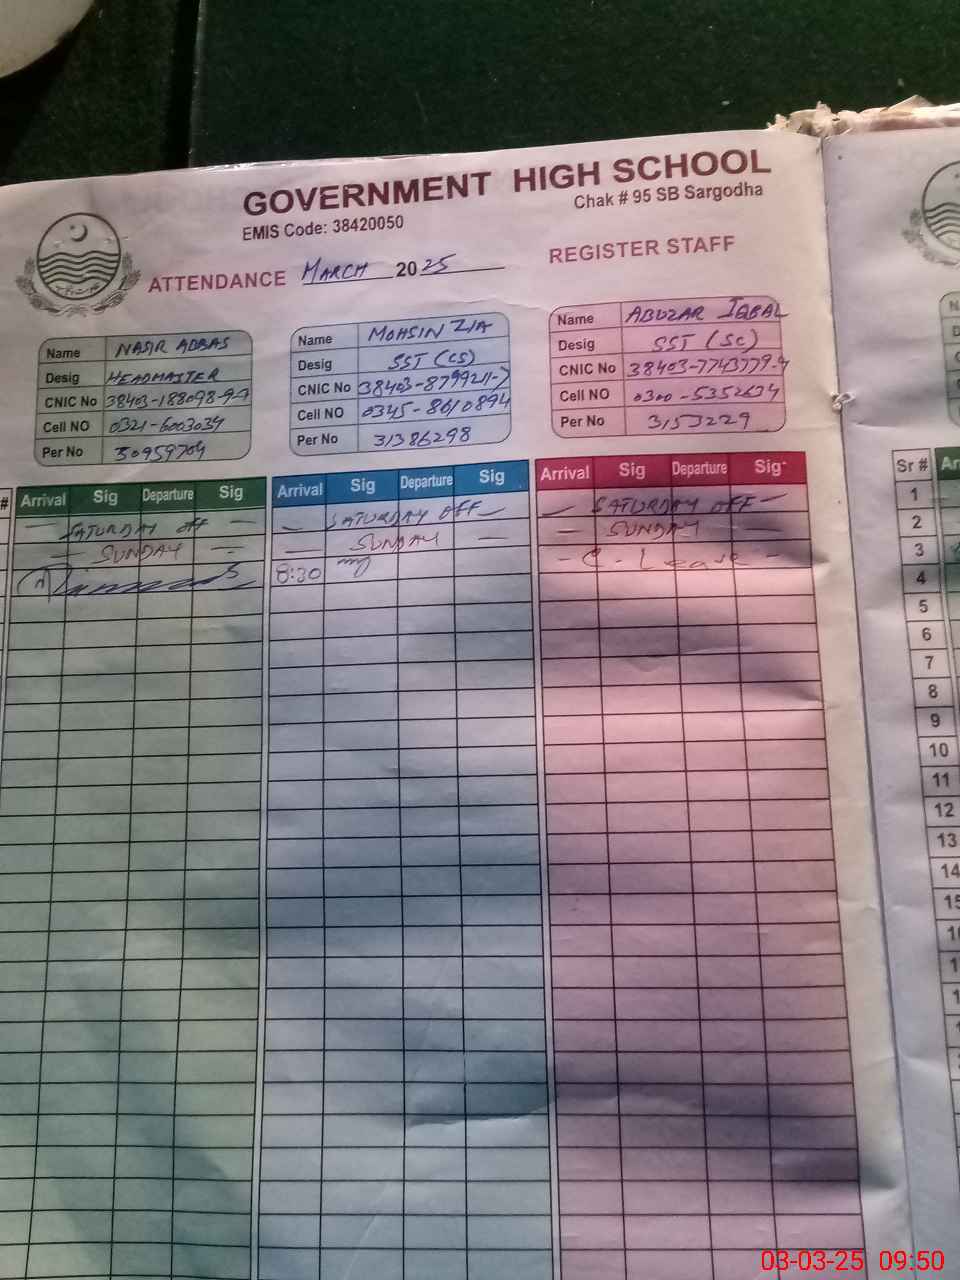 GOVERNMENT HIGH SCHOOL
Chak # 95 SB Sargodha
EMIS Code: 38420050
ATTENDANCE MARCH 2025 REGISTER STAFF
Name NASIR ABBAS
Desig HEADMASTER
CNIC No
Cell NO 0321-6003034
Per No 30959704
Name MOHSIN ZIA
Desig SST (CS)
CNIC No 38403-8799211-7
Cell NO 0345-8610894
Per No 31386298
Name ABUZAR IQBAL
Desig SST (SC)
CNIC No 38403-7743779-9
Cell NO 0300-5352634
Per No 3153229
# Arrival Sig Departure Sig Arrival Sig Departure Sig Arrival Sig Departure Sig
SATURDAY OFF SATURDAY OFF SATURDAY OFF
SUNDAY SUNDAY SUNDAY
8:30 C. Leave
Sr #
1
2
3
4
5
6
7
8
9
10
11
12
13
14
15
03-03-25 09:50